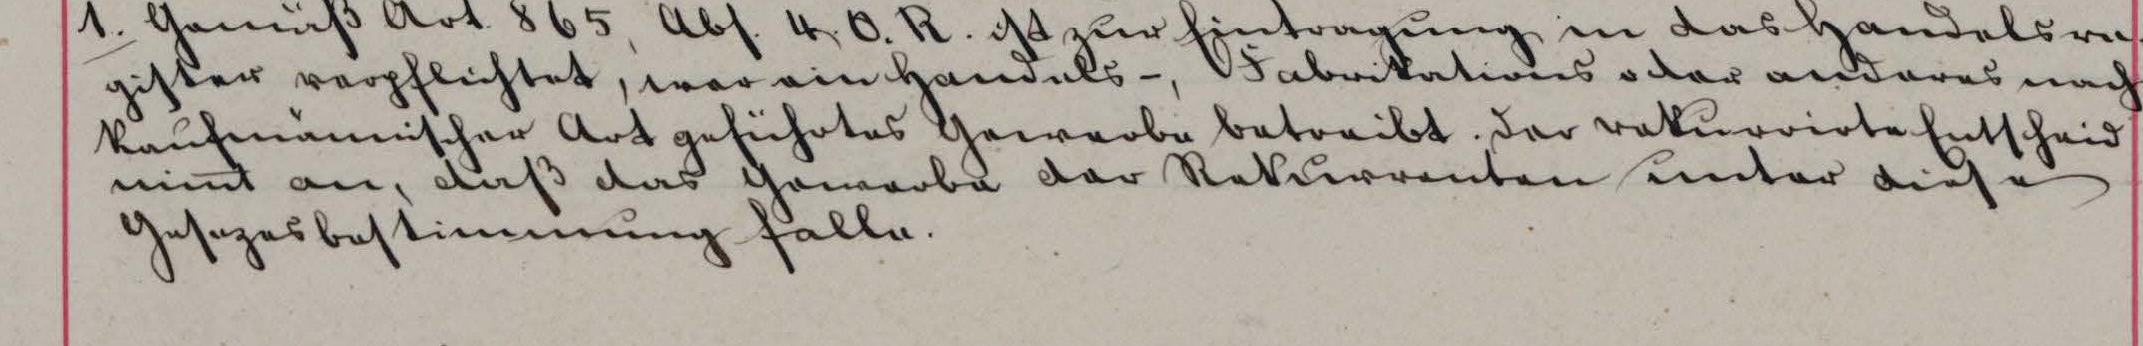 1. Gemäß Art. 865, Abs. 4. O. R. ist zur Eintragung in das Handelsre-
gister verpflichtet, wer ein Handels-, Fabrikations oder anderes nach
kaufmännischer Art geführtes Gewerbe betreibt. Der rekurrirte Entscheid
nim̅t an, daß das Gewerbe der Rekurrenten unter diese
Gesezesbestimmung falle.